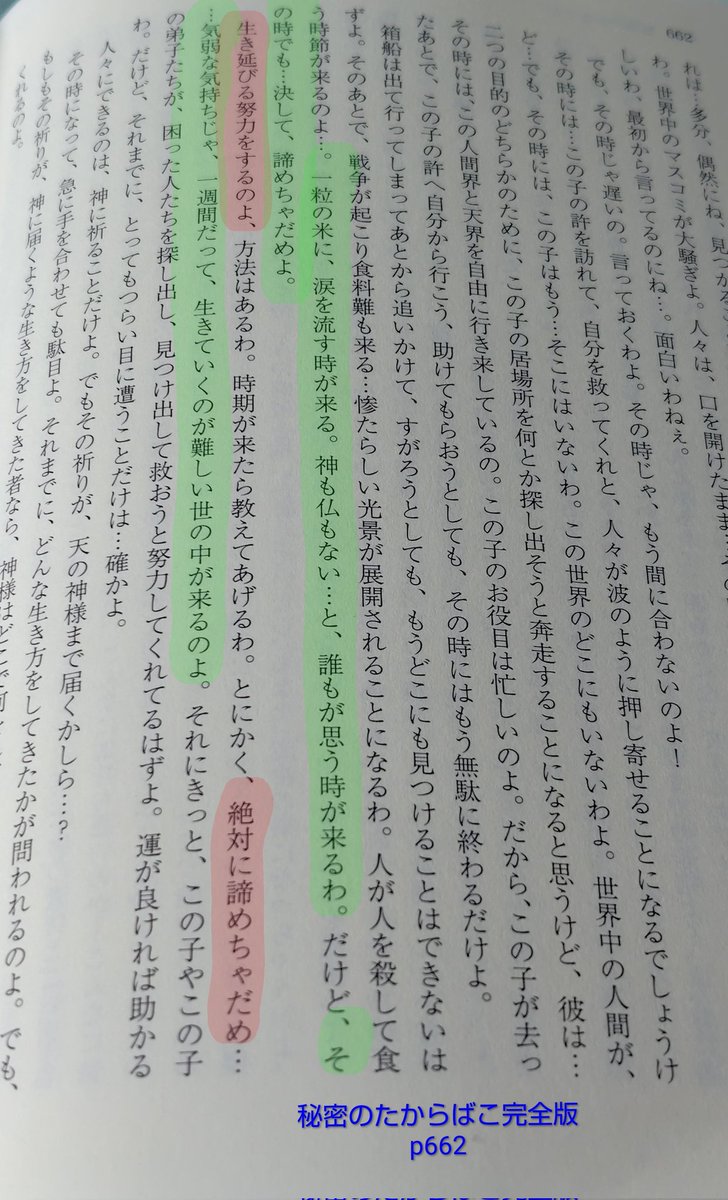 662
れは…多分、偶然にね、見つか
わ。世界中のマスコミが大騒ぎよ。人々は、口を開けたまま
しいわ、最初から言ってるのにね…。面白いわねぇ。
でも、その時じゃ遅いの。言っておくわよ。その時じゃ、もう間に合わないのよ！
その時には…この子の許を訪れて、自分を救ってくれと、人々が波のように押し寄せることになるでしょうけ
ど…でも、その時には、この子はもう…そこにはいないわ。この世界のどこにもいないわよ。世界中の人間が、
二つの目的のどちらかのために、この子の居場所を何とか探し出そうと奔走することになると思うけど、彼は…
その時には、この人間界と天界を自由に行き来しているの。この子のお役目は忙しいのよ。だから、この子が去っ
たあとで、この子の許へ自分から行こう、助けてもらおうとしても、その時にはもう無駄に終わるだけよ。
箱船は出て行ってしまってあとから追いかけて、すがろうとしても、もうどこにも見つけることはできないは
ずよ。そのあとで、戦争が起こり食料難も来る…惨たらしい光景が展開されることになるわ。人が人を殺して食
う時節が来るのよ…。一粒の米に、涙を流す時が来る。神も仏もない…と、誰もが思う時が来るわ。だけど、そ
の時でも…決して、諦めちゃだめよ。
生き延びる努力をするのよ、方法はあるわ。時期が来たら教えてあげるわ。とにかく、絶対に諦めちゃだめ…
…気弱な気持ちじゃ、一週間だって、生きていくのが難しい世の中が来るのよ。それにきっと、この子やこの子
の弟子たちが、困った人たちを探し出し、見つけ出して救おうと努力してくれてるはずよ。運が良ければ助かる
わ。だけど、それまでに、とってもつらい目に遭うことだけは…確かよ。
人々にできるのは、神に祈ることだけよ。でもその祈りが、天の神様まで届くかしら…？
その時になって、急に手を合わせても駄目よ。それまでに、どんな生き方をしてきたかが問われるのよ。でも、
もしもその祈りが、神に届くような生き方をしてきた者なら、神様はどこで何
くれるのよ。
秘密のたからばこ完全版
p662